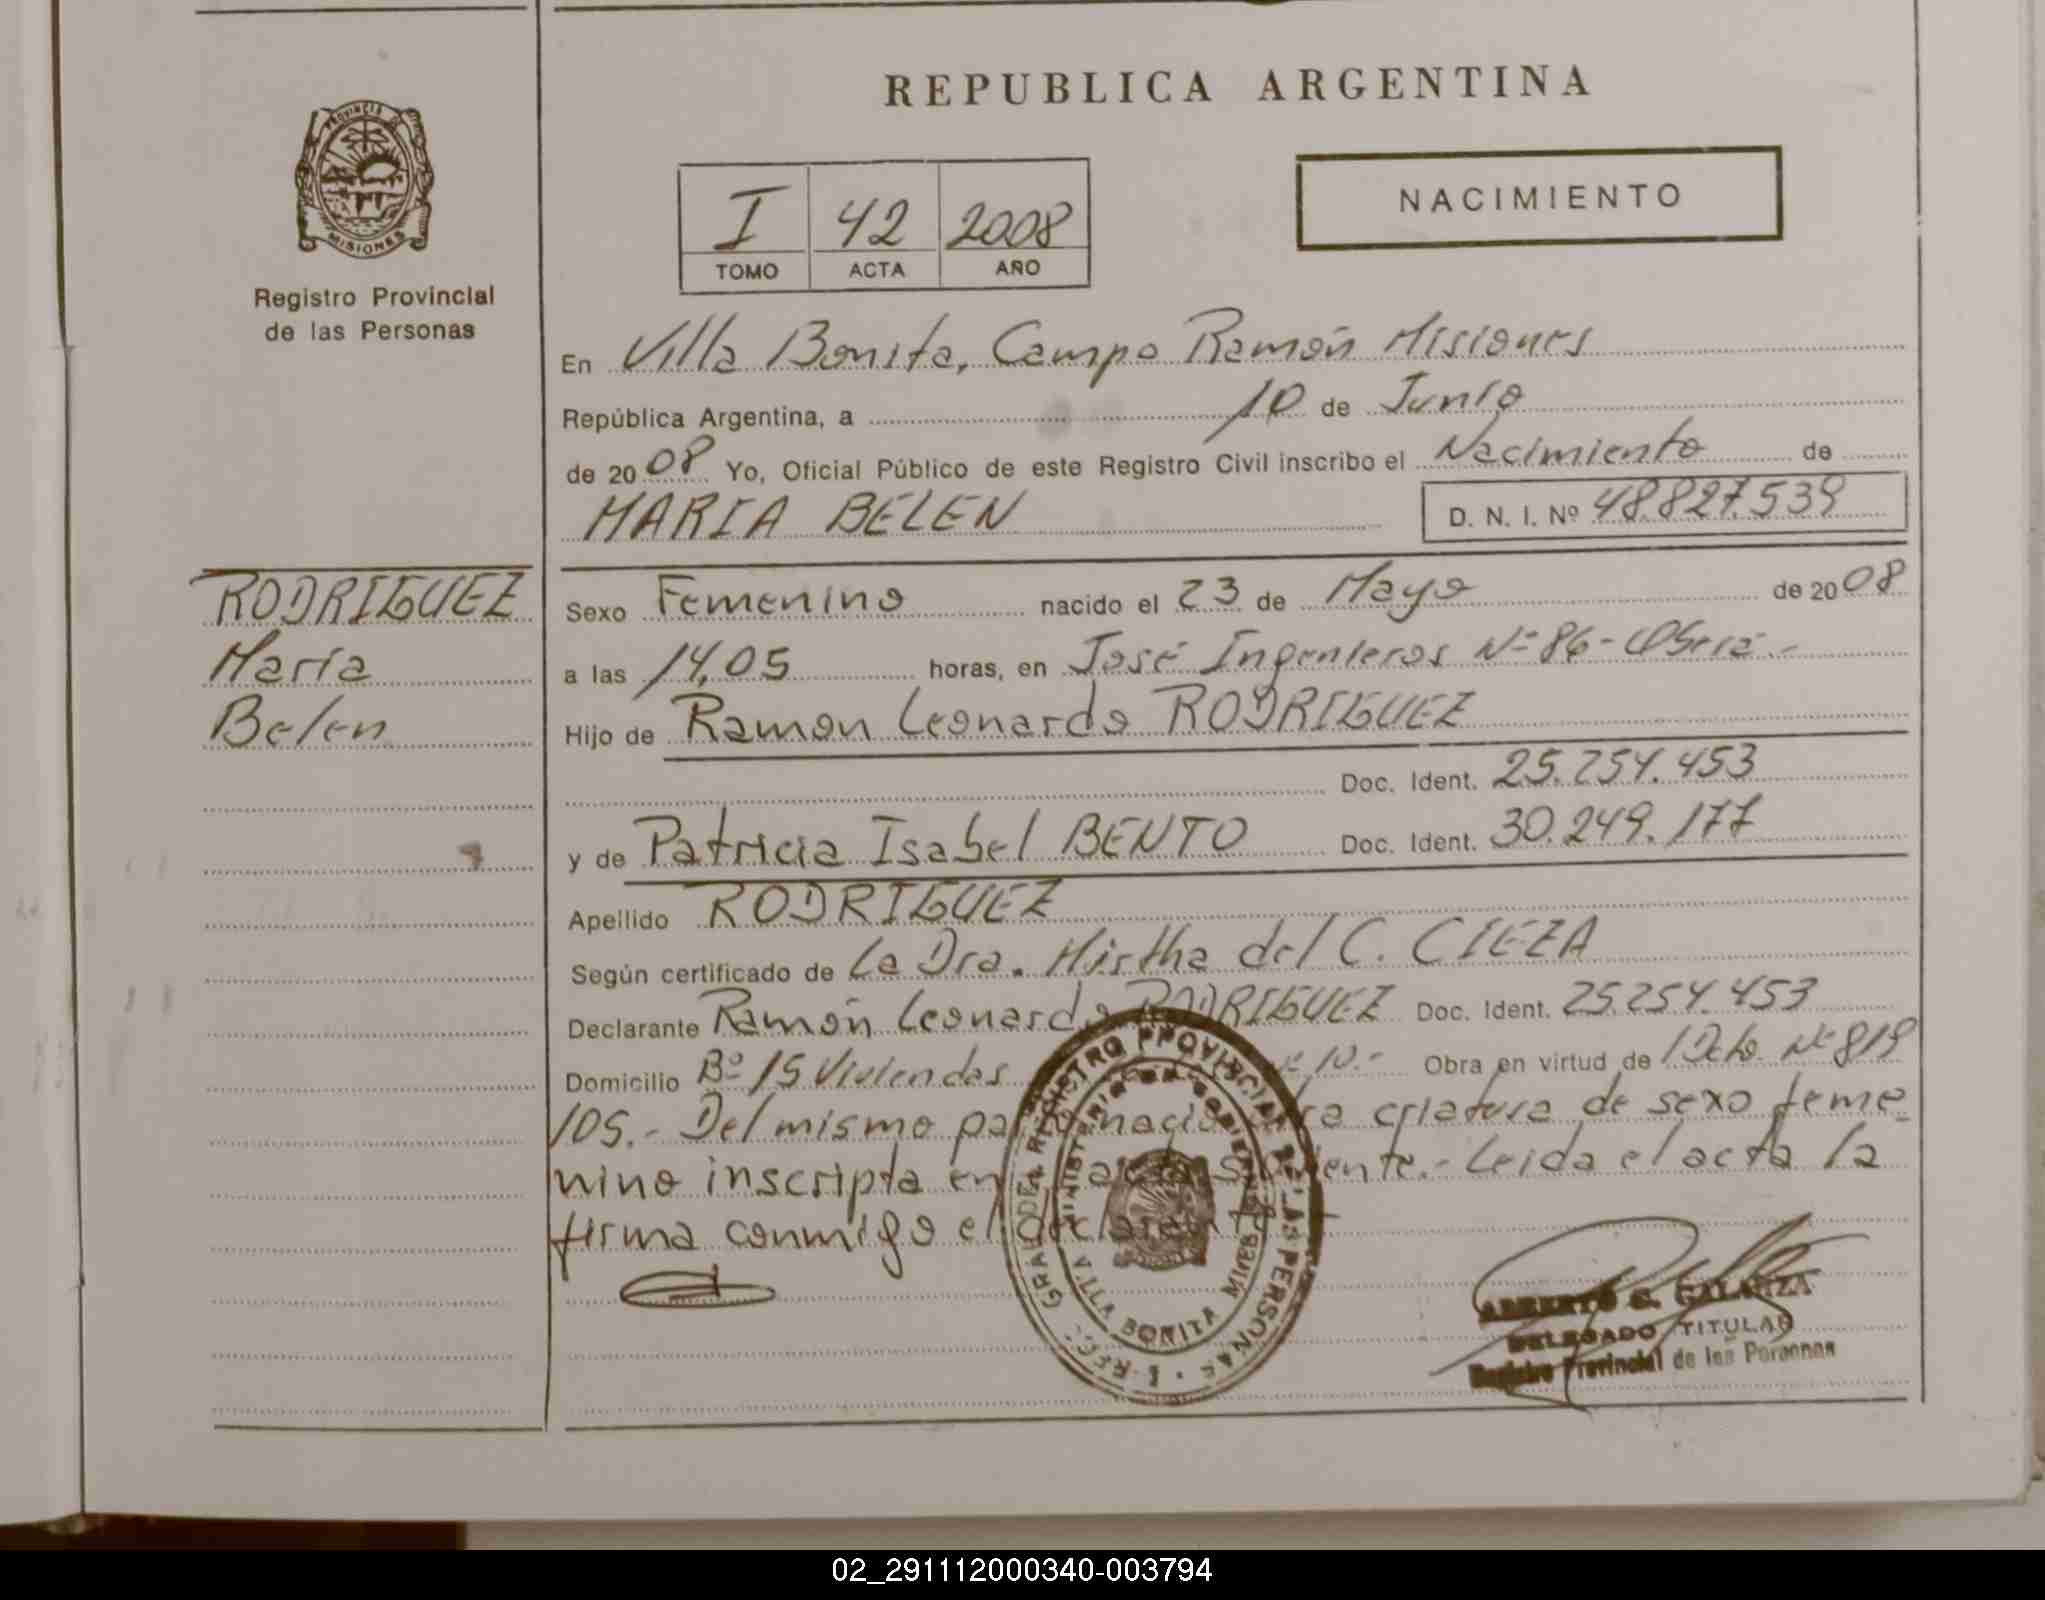 REPUBLICA ARGENTINA
PROVINCIA DE
MISIONES
Registro Provincial
de las Personas
I 42 2008
TOMO ACTA AÑO
NACIMIENTO
En Villa Bonita, Campo Ramón Misiones
República Argentina, a 10 de Junio
de 2008 Yo, Oficial Público de este Registro Civil inscribo el Nacimiento de
MARIA BELEN D. N. I. Nº 48.827.539
RODRIGUEZ
María
Belen
Sexo Femenino nacido el 23 de Mayo de 2008
a las 14,05 horas, en José Ingenieros Nº 86 - Oberá.-
Hijo de Ramon Leonardo RODRIGUEZ
Doc. Ident. 25.254.453
y de Patricia Isabel BENTO Doc. Ident. 30.249.177
Apellido RODRIGUEZ
Según certificado de La Dra. Mirtha del C. CIEZA
Declarante Ramón Leonardo RODRIGUEZ Doc. Ident. 25.254.453
Domicilio Bº 15 Viviendas 10.- Obra en virtud de Nº 819
105.- Del mismo criatura de sexo feme-
nino inscripta en Leida el acta la
firma conmigo el declarante
REGISTRO PROVINCIAL DE LAS PERSONAS
VILLA BONITA
ALBERTO G. GALARZA
DELEGADO TITULAR
Registro Provincial de las Personas
02_291112000340-003794